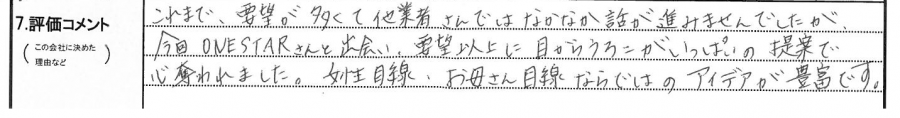 7.評価コメント
(この会社に決めた
理由など)
これまで、要望が多くて他業者さんではなかなか話が進みませんでしたが、
今回ONESTARさんと出会い、要望以上に目からうろこがいっぱいの提案で
心奪われました。女性目線、お母さん目線ならではのアイデアが豊富です。